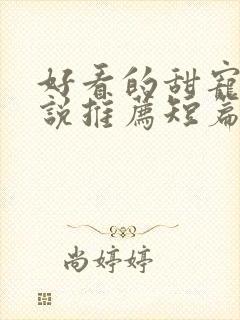 好看的甜宠
说推荐短篇
尚婷婷